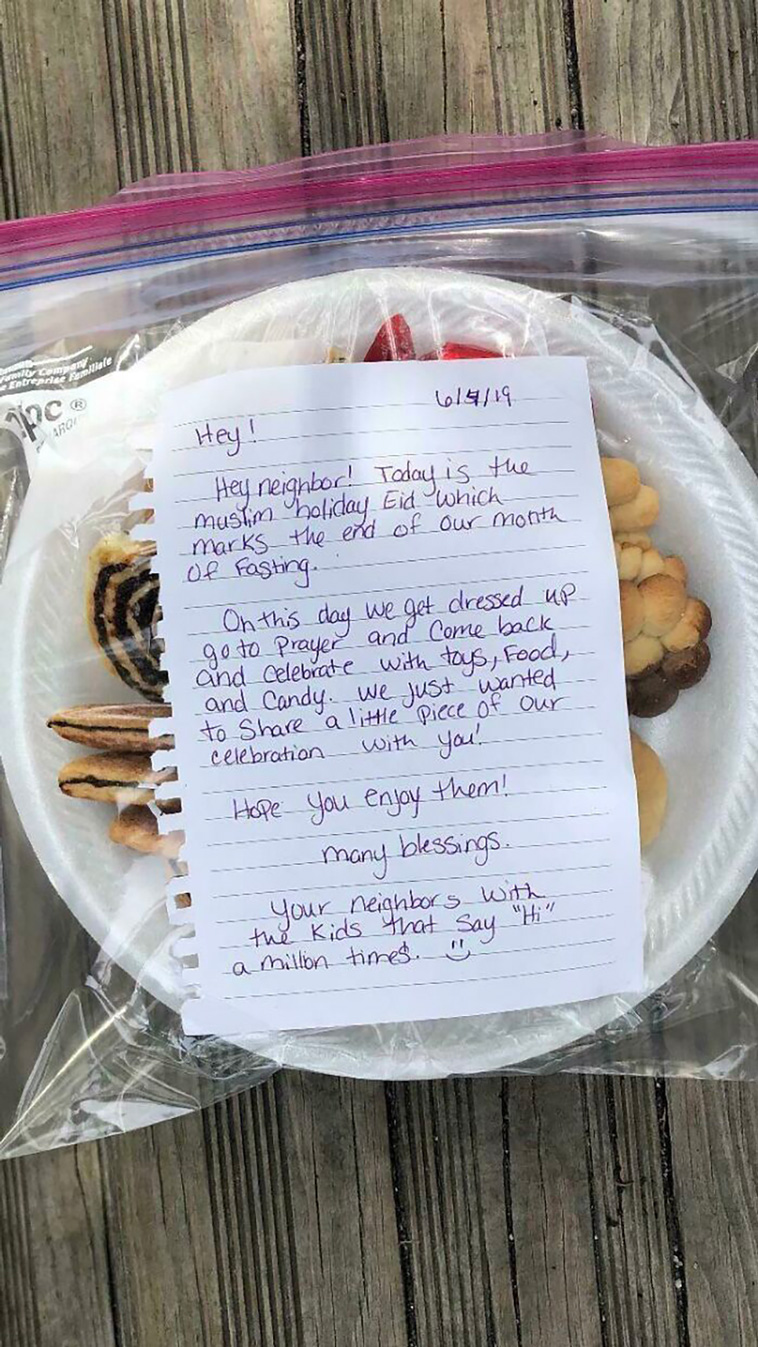 Family Company
Entreprise Familiale
®
6/4/19
Hey!
Hey neighbor! Today is the
muslim holiday Eid which
marks the end of our month
of Fasting.
On this day we get dressed up
go to Prayer and Come back
and celebrate with toys, Food,
and Candy. We just wanted
to Share a little Piece of our
celebration with you!
Hope you enjoy them!
many blessings.
Your neighbors with
the Kids that Say "Hi"
a million times.